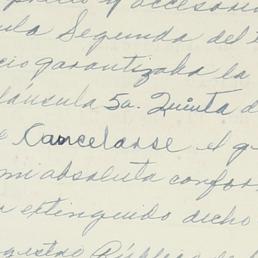 y accesorio
ula Segunda del
cio garantizaba la
láusula 5a. Quinta d
Cancelarse el q
mi absoluta confor
extinguido dicho
gistro Público